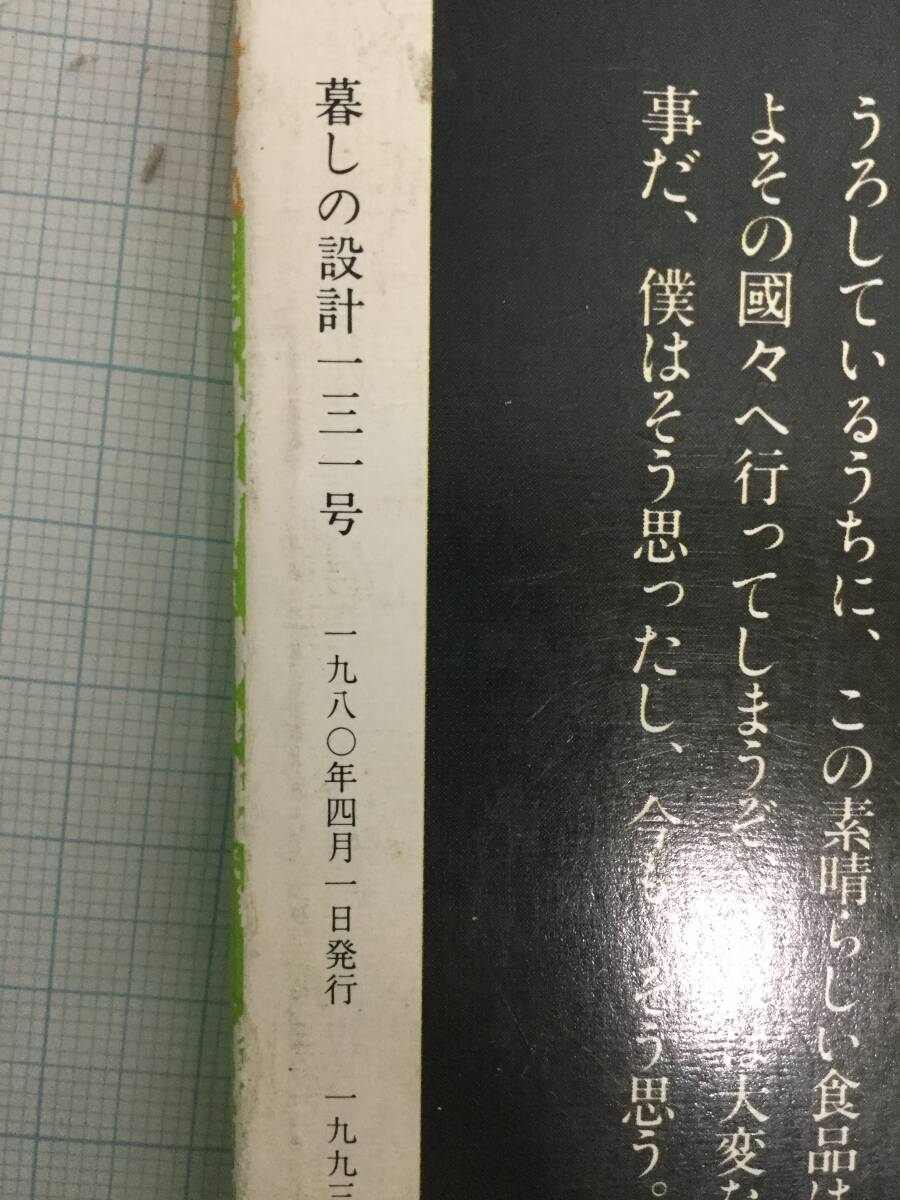 うろしているうちに、この素晴らしい食品は
よその國々へ行ってしまうぞ、は大変な
事だ、僕はそう思ったし、今も、そう思う。
暮しの設計一三一号　一九八〇年四月一日発行　一九九三